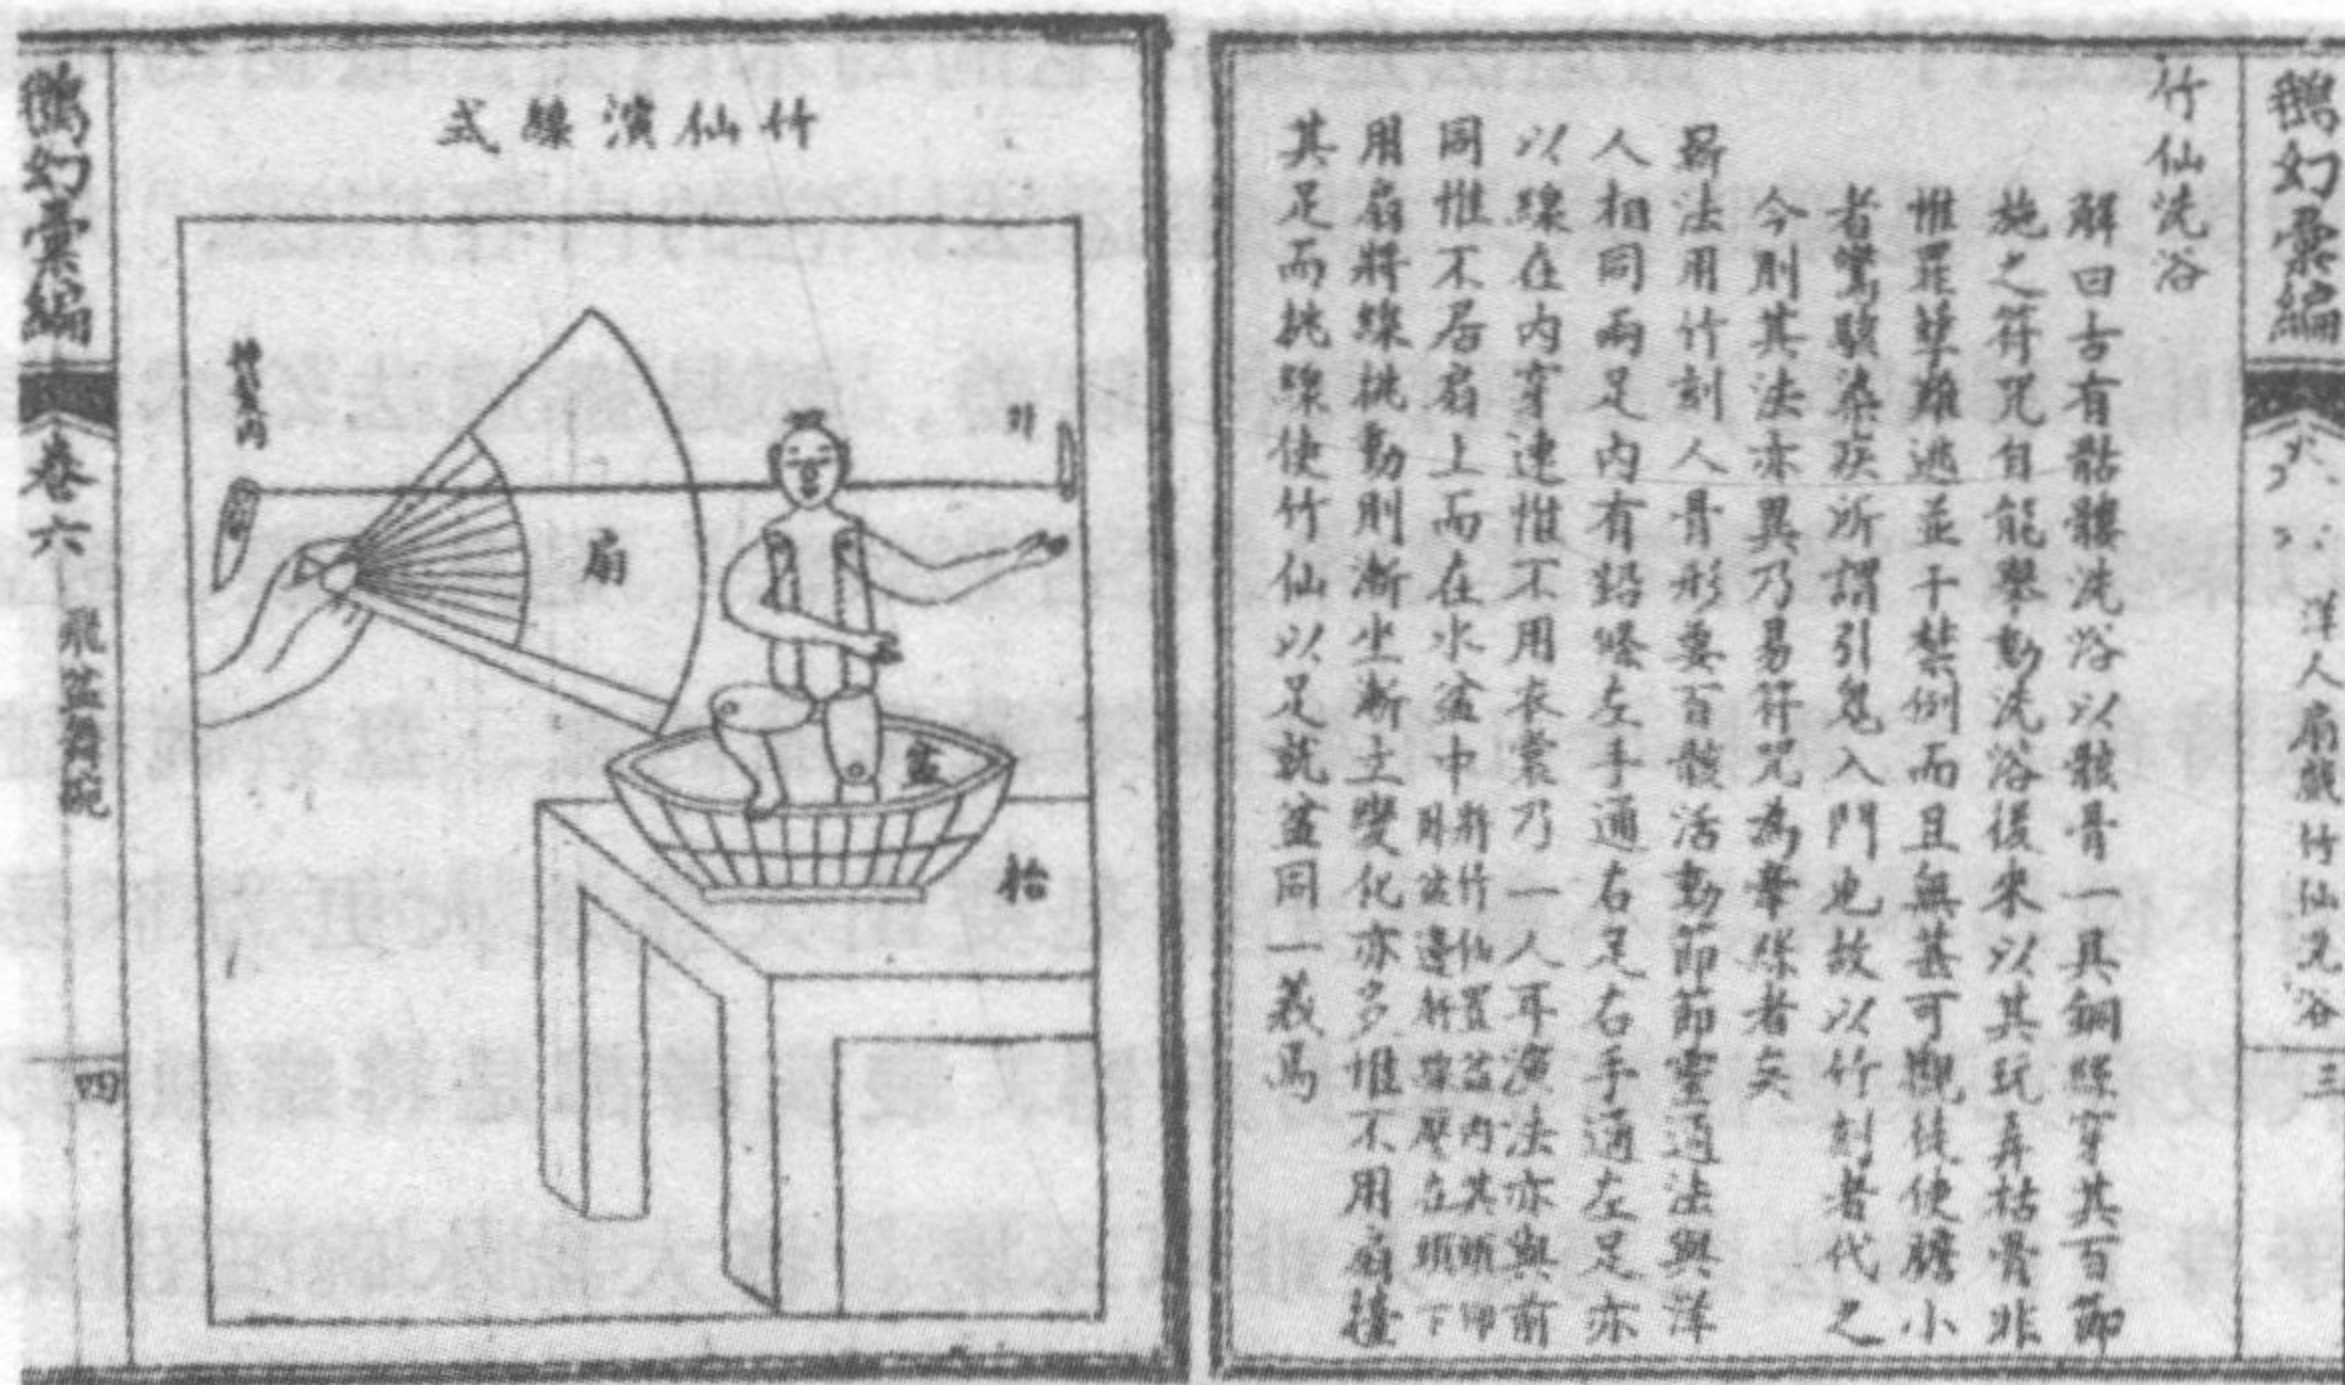 鵝幻彙編
洋人扇戲竹仙洗浴
三
竹仙洗浴
解曰古有骷髏洗浴以骸骨一具銅絲穿其百節
施之符咒自能舉動洗浴後來以其玩弄枯骨非
惟罪孽難逃並干禁例而且無甚可觀徒使膽小
者驚駭染疾所謂引鬼入門也故以竹刻者代之
今則其法亦異乃易符咒為牽絲者矣
新法用竹刻人骨形要百骸活動節節靈通法與洋
人相同兩足內有鉛條左手通右足右手通左足亦
以線在內穿連惟不用衣裳乃一人耳演法亦與前
同惟不居扇上而在水盆中將竹仙置盆內其頭仰
臥盆邊將線壓在頭下
用扇將線挑動則漸坐漸立變化亦多惟不用扇撞
其足而挑線使竹仙以足就盆同一義焉
竹仙演線式
外
扇
盆
抬
鵝幻彙編
卷六
飛盆舞碗
四